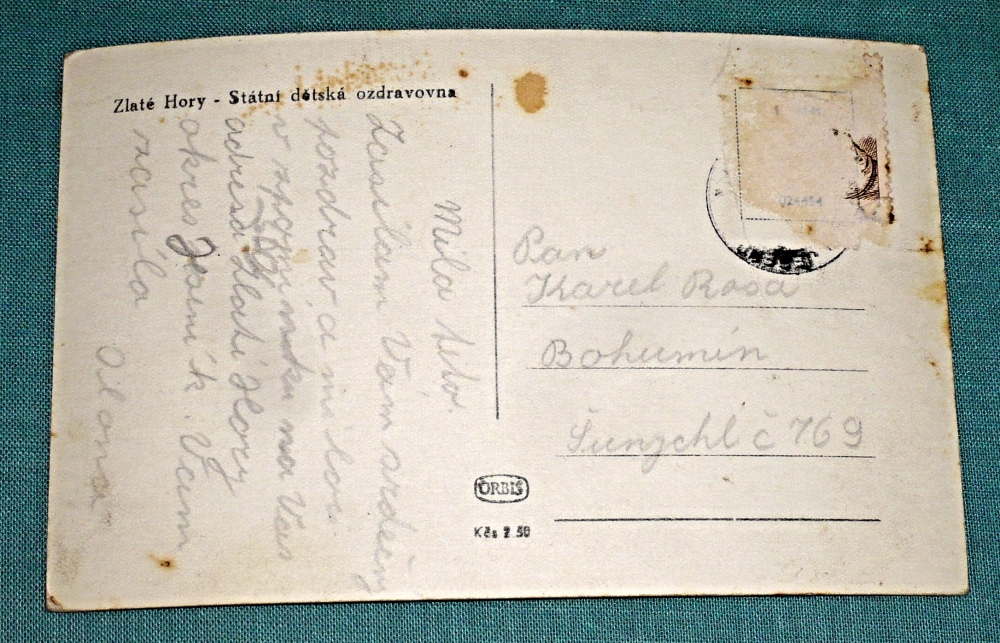 Zlaté Hory - Státní dětská ozdravovna
Milá teto.
Zasílám Vám srdečný
pozdrav, a milou
vzpomínku na Vás
adresa Zlaté Hory
okres Jeseník. Vám
zasíla
Pan
Karel Rosa
Bohumín
Šunychl č 769
024454
ORBIS
Kčs 2.50